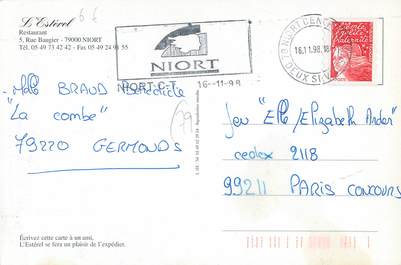 L'Estérel
Restaurant
5, Rue Baugier - 79000 NIORT
Tél. 05 49 73 42 42 - Fax 05 49 24
NIORT
NIORT C.T. 16-11-98
NIORT CENT
16.11.98
DEUX SEV
Liberté
égalité
fraternité
Melle BRAUD Bénédicte
"La combe"
79220 GERMOND
79
Jeu "Elle/Elizabeth Arden"
cedex 2118
99211 PARIS CONCOURS
Écrivez cette carte à un ami,
L'Estérel se fera un plaisir de l'expédier.